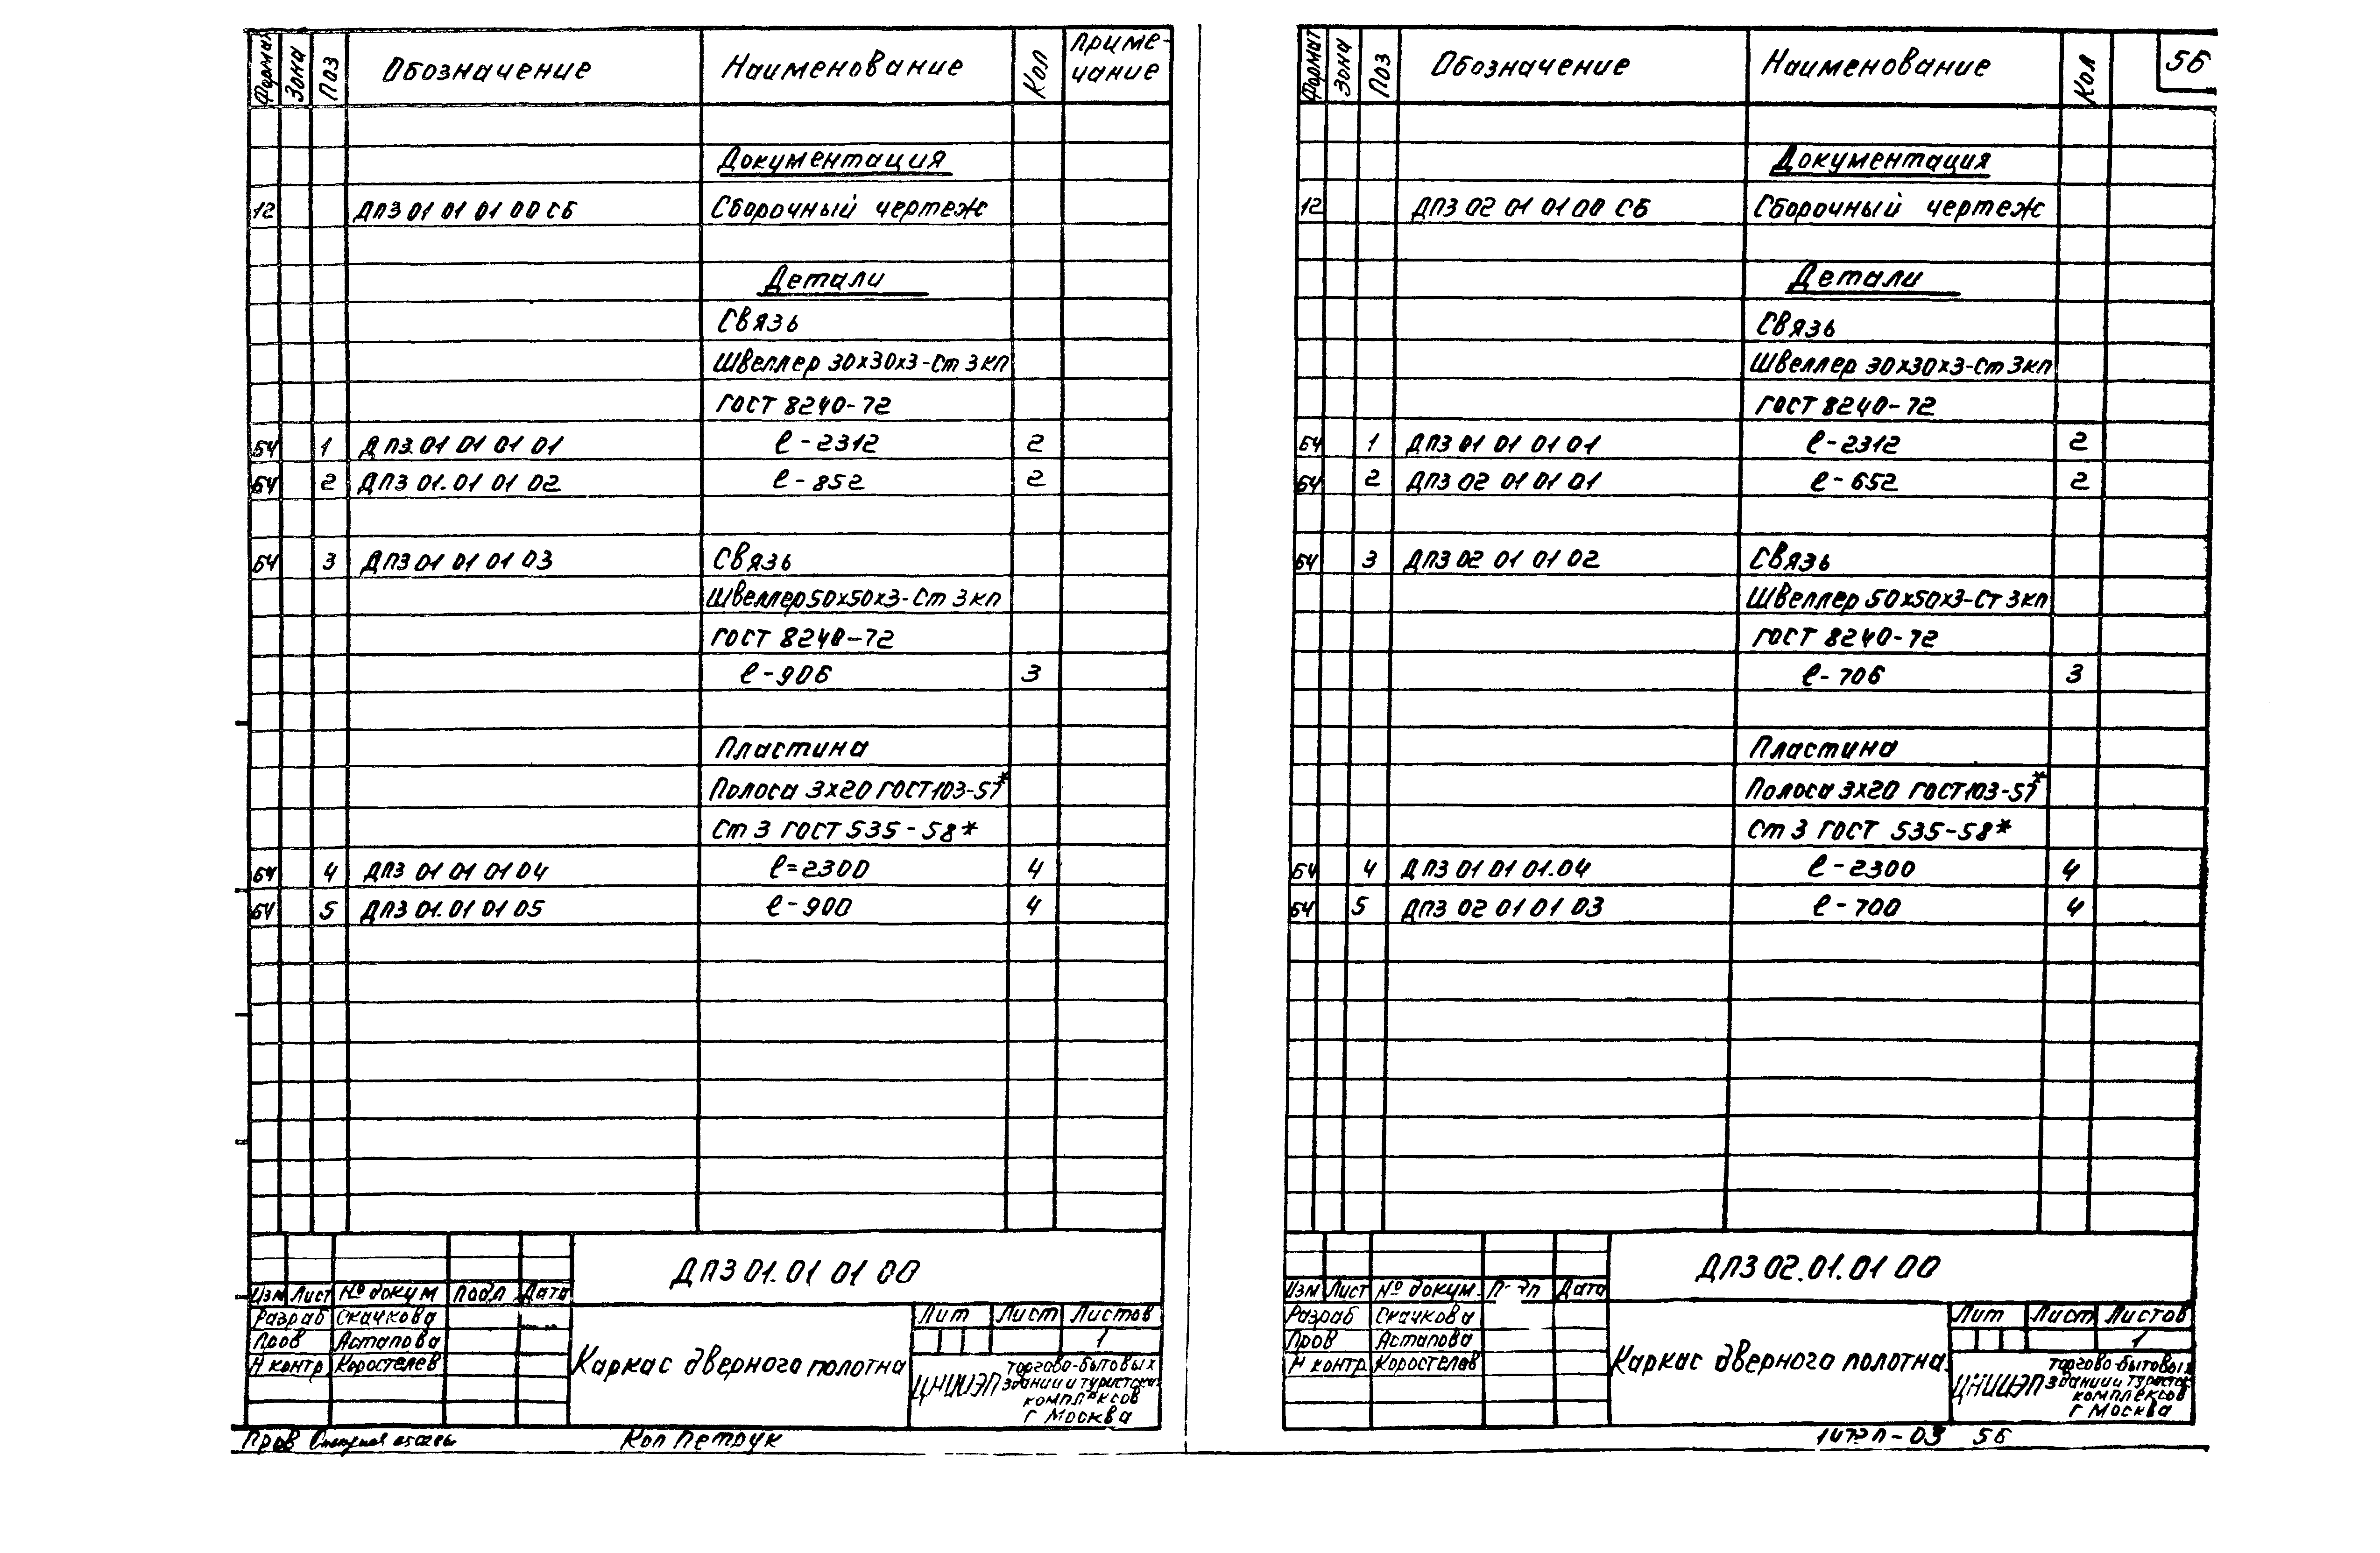 Формат Зона Поз Обозначение Наименование Кол Приме-
чание
Документация
12 ДПЗ 01 01 01 00 СБ Сборочный чертеж
Детали
Связь
Швеллер 30х30х3-Ст 3кп
ГОСТ 8240-72
БЧ 1 ДПЗ. 01 01 01 01 ℓ-2312 2
БЧ 2 ДПЗ 01. 01 01 02 ℓ-852 2
БЧ 3 ДПЗ 01 01 01 03 Связь
Швеллер 50х50х3-Ст 3кп
ГОСТ 8240-72
ℓ-906 3
Пластина
Полоса 3х20 ГОСТ 103-57*
Ст 3 ГОСТ 535-58*
БЧ 4 ДПЗ 01 01 01 04 ℓ=2300 4
БЧ 5 ДПЗ 01. 01 01 05 ℓ-900 4
ДПЗ 01. 01 01 00
Изм Лист № докум Подп Дата
Разраб Скачкова
Пров Астапова
Н контр Коростелев
Каркас дверного полотна
Лит Лист Листов
1
ЦНИИЭП торгово-бытовых
зданий и туристских
комплексов
г Москва
Пров
Коп Петрук
Формат Зона Поз Обозначение Наименование Кол 56
Документация
12 ДПЗ 02 01 01 00 СБ Сборочный чертеж
Детали
Связь
Швеллер 30х30х3-Ст 3кп
ГОСТ 8240-72
БЧ 1 ДПЗ 01 01 01 01 ℓ-2312 2
БЧ 2 ДПЗ 02 01 01 01 ℓ-652 2
БЧ 3 ДПЗ 02 01 01 02 Связь
Швеллер 50х50х3-Ст 3кп
ГОСТ 8240-72
ℓ-706 3
Пластина
Полоса 3х20 ГОСТ 103-57*
Ст 3 ГОСТ 535-58*
БЧ 4 ДПЗ 01 01 01.04 ℓ-2300 4
БЧ 5 ДПЗ 02 01 01 03 ℓ-700 4
ДПЗ 02.01.01 00
Изм Лист № докум. Дата
Разраб Скачкова
Пров Астапова
Н контр Коростелев
Каркас дверного полотна.
Лит Лист Листов
1
ЦНИИЭП торгово-бытовых
зданий и турист
комплексов
г Москва
-03 56